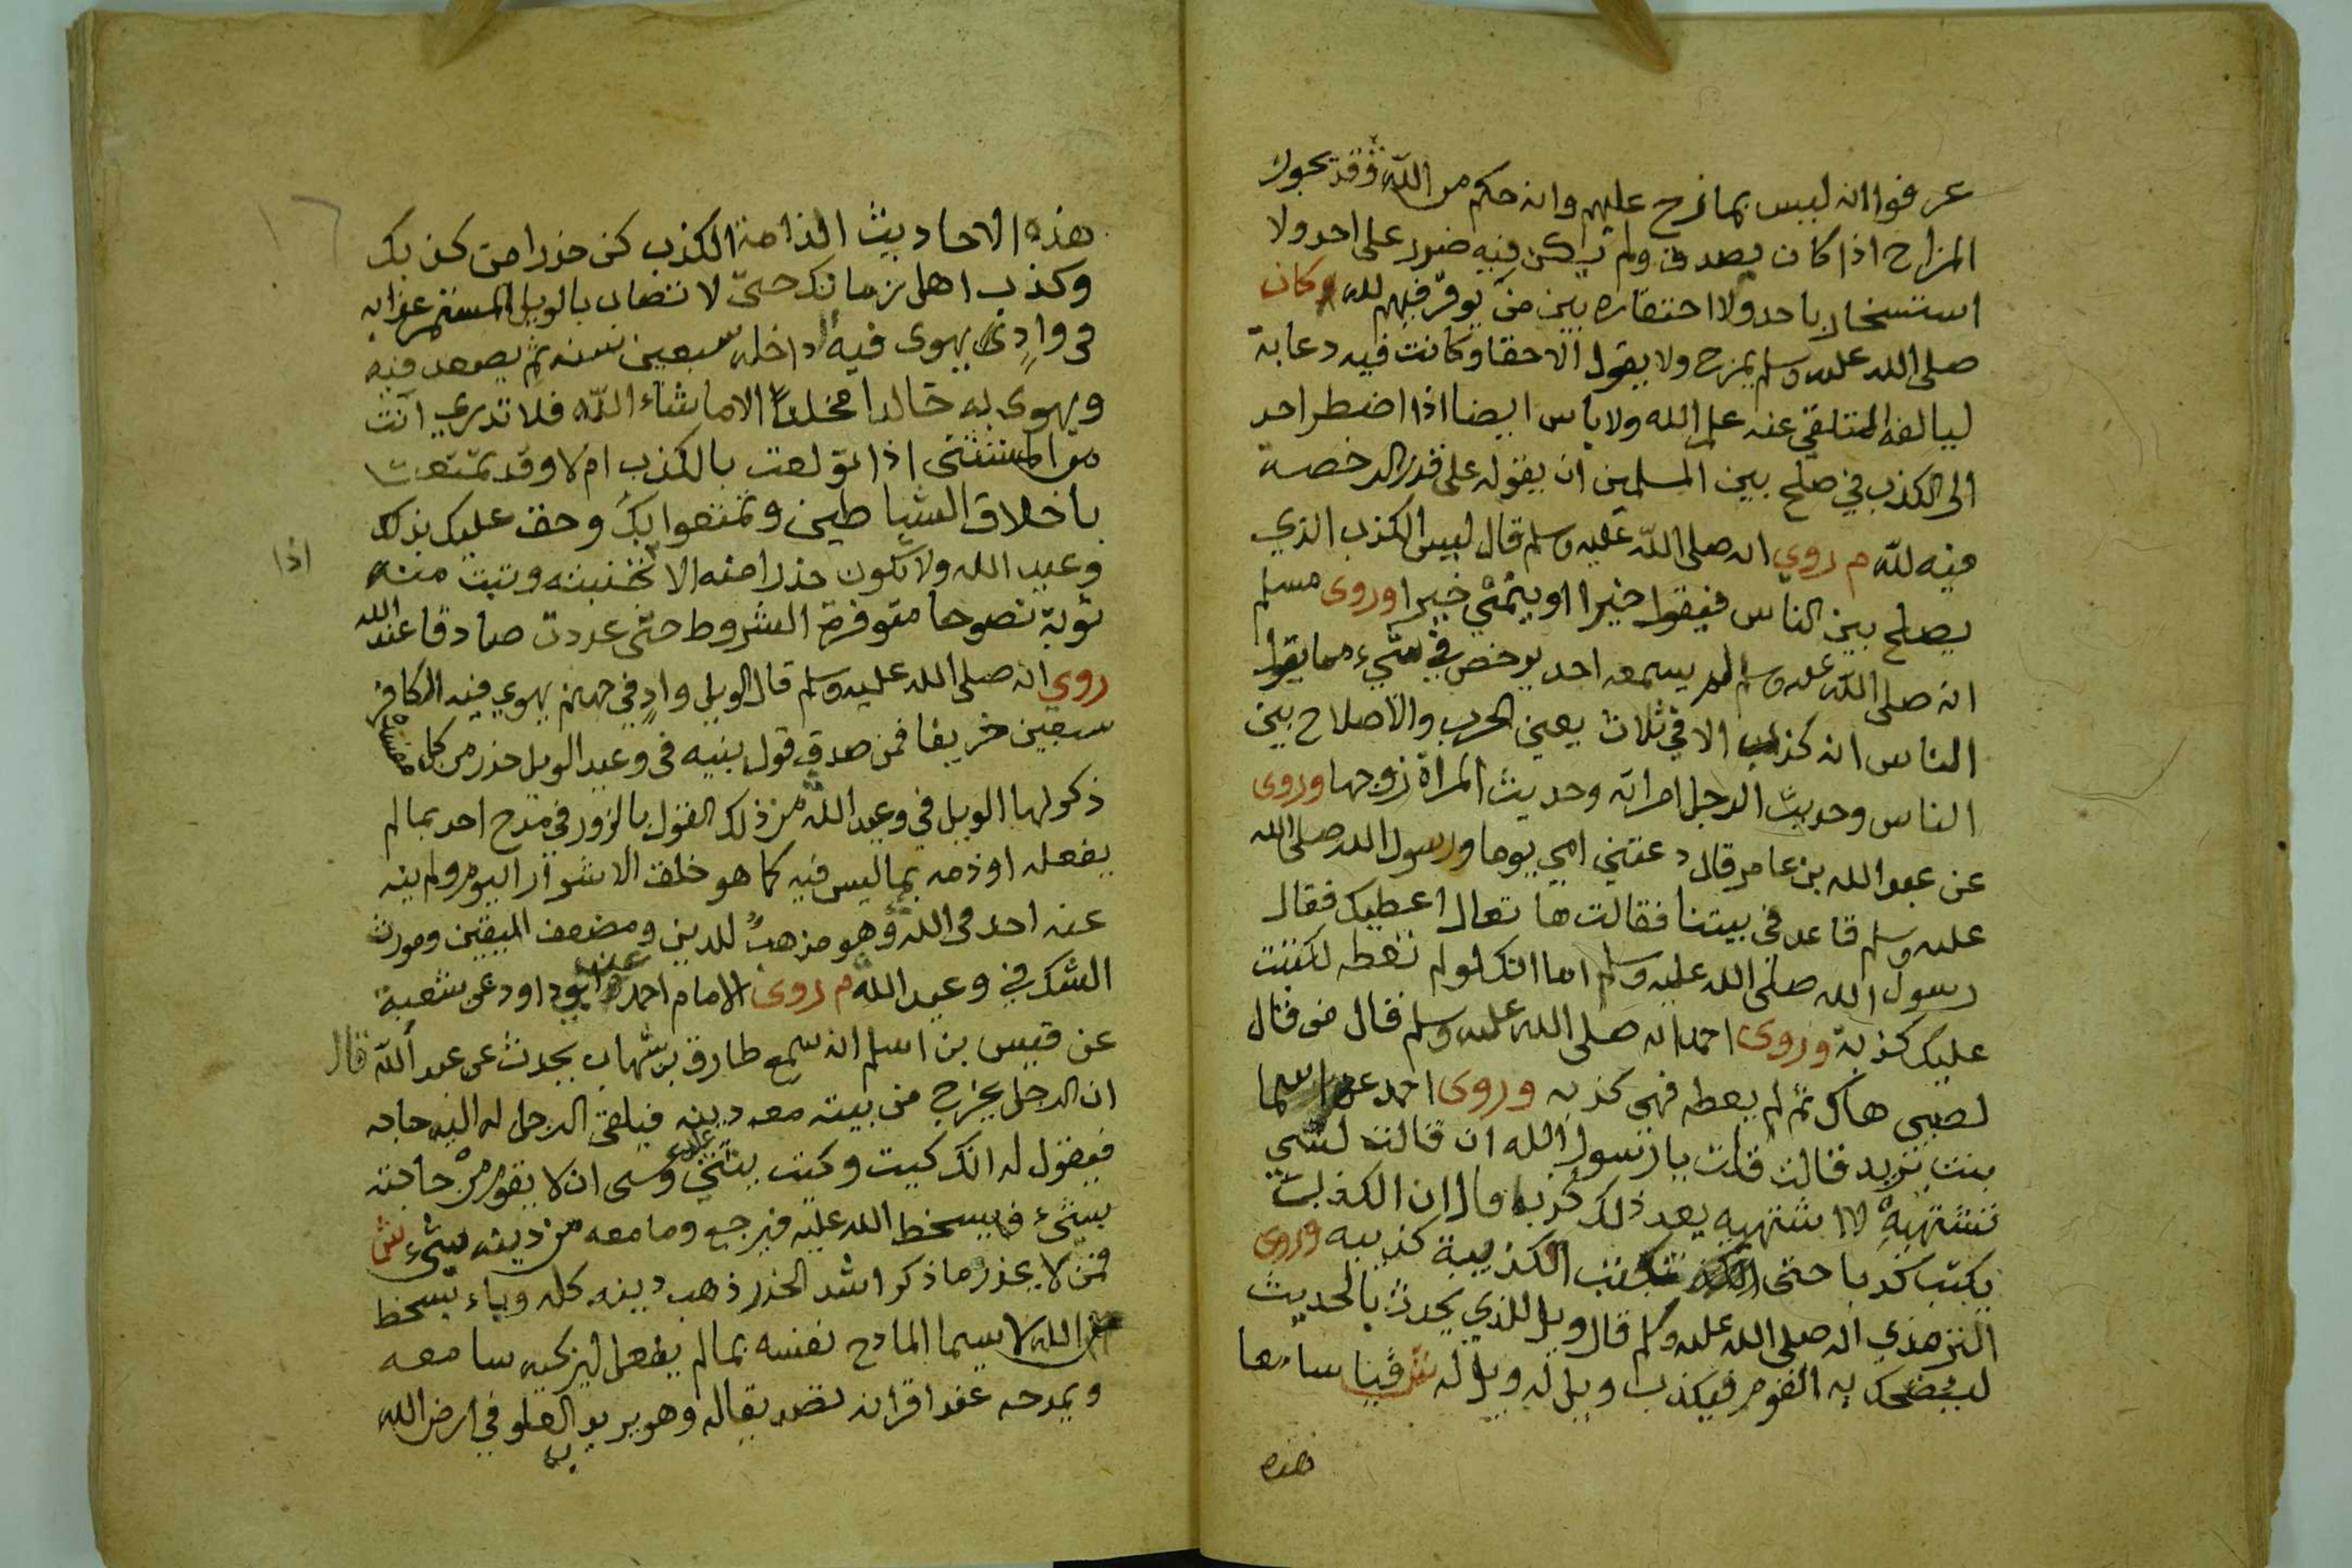 عرفوا انه ليس بمازح عليهم وانه حكم من الله وقد يجوز
المزاح اذا كان يصدق ولم يكن فيه ضرر على احد ولا
استسخار باحد ولا احتقاره بين من يوقر فيهم لله وكان
صلى الله عليه وسلم يمزح ولا يقول الا حقا وكانت فيه دعابة
ليالفه المتلقي عنه علم الله ولا باس ايضا اذا اضطر احد
الى الكذب في صلح بين المسلمين ان يقوله على قدر الرخصة
فيه لله م روي انه صلى الله عليه وسلم قال ليس الكذب الذي
يصلح بين الناس فيقول خيرا او ينمي خيرا وروى مسلم
انه صلى الله عليه وسلم لم يسمعه احد يرخص في شيء مما يقول
الناس انه كذب الا في ثلاث يعني الحرب والاصلاح بين
الناس وحديث الرجل امراته وحديث المراة زوجها وروى
عن عبد الله بن عامر قال دعتني امي يوما ورسول الله صلى الله
عليه وسلم قاعد في بيتنا فقالت ها تعال اعطيك فقال
رسول الله صلى الله عليه وسلم اما انك لو لم تعطه لكتبت
عليك كذبة وروى احمد انه صلى الله عليه وسلم قال من قال
لصبي هاك ثم لم يعطه فهي كذبه وروى احمد عن اسما
بنت يزيد قالت قلت يا رسول الله ان قالت لشي
تشتهيه لا اشتهيه يعد ذلك كذبا قال ان الكذب
يكتب كذبا حتى تكتب الكذيبة كذيبه وروى
الترمذي انه صلى الله عليه وسلم قال ويل للذي يحدث بالحديث
ليضحك به القوم فيكذب ويل له ويل له ش فيا سامعا
هذه
هذه الاحاديث الذامة الكذب كن حذرا من كذبك
وكذب اهل زمانك حتى لا تصاب بالويل المستمر عذابه
في وادي يهوى فيه داخله سبعين سنه ثم يصعد فيه
ويهوى به خالدا مخلدا الا ما شاء الله فلا تدري انت
من المستثنى اذا تولعت بالكذب ام لا وقد تمتعت
باخلاق الشياطين وتمتعوا بك وحق عليك بذلك
وعيد الله ولا تكون حذرا منه الا تجنبته وتبت منه
اذا
توبة نصوحا متوفرة الشروط حتى عددت صادقا عند الله
روي انه صلى الله عليه وسلم قال الويل واد في جهنم يهوي فيه الكافر
سبعين خريفا فمن صدق قول بنيه في وعيد الويل حذر من كل
ذكر لها الويل في وعيد الله من ذلك القول بالزور في مدح احد بما لم
يفعله او ذمه بما ليس فيه كما هو خلق الاشرار اليوم ولم ينه
عنه احد في الله وهو مذهب للدين ومضعف اليقين ومورث
الشك في وعيد الله م روى الامام احمد وابو داود عن شعبة
عن قيس بن اسلم انه سمع طارق بن شهاب يحدث عن عبد الله قال
ان الرجل يخرج من بيته معه دينه فيلقى الرجل له اليه حاجه
فيقول له انك كيت وكيت يثني عليه وعسى ان لا يقوم من حاجته
بشيء فيسخط الله عليه فيرجع وما معه من دينه بشيء ش
فمن لا يحذر ما ذكر اشد الحذر ذهب دينه كله وباء بسخط
من الله لا سيما المادح نفسه بما لم يفعل ليزكيه سامعه
ويمدحه عند اقرانه نقد يقاله وهو يريد العلو في ارض الله